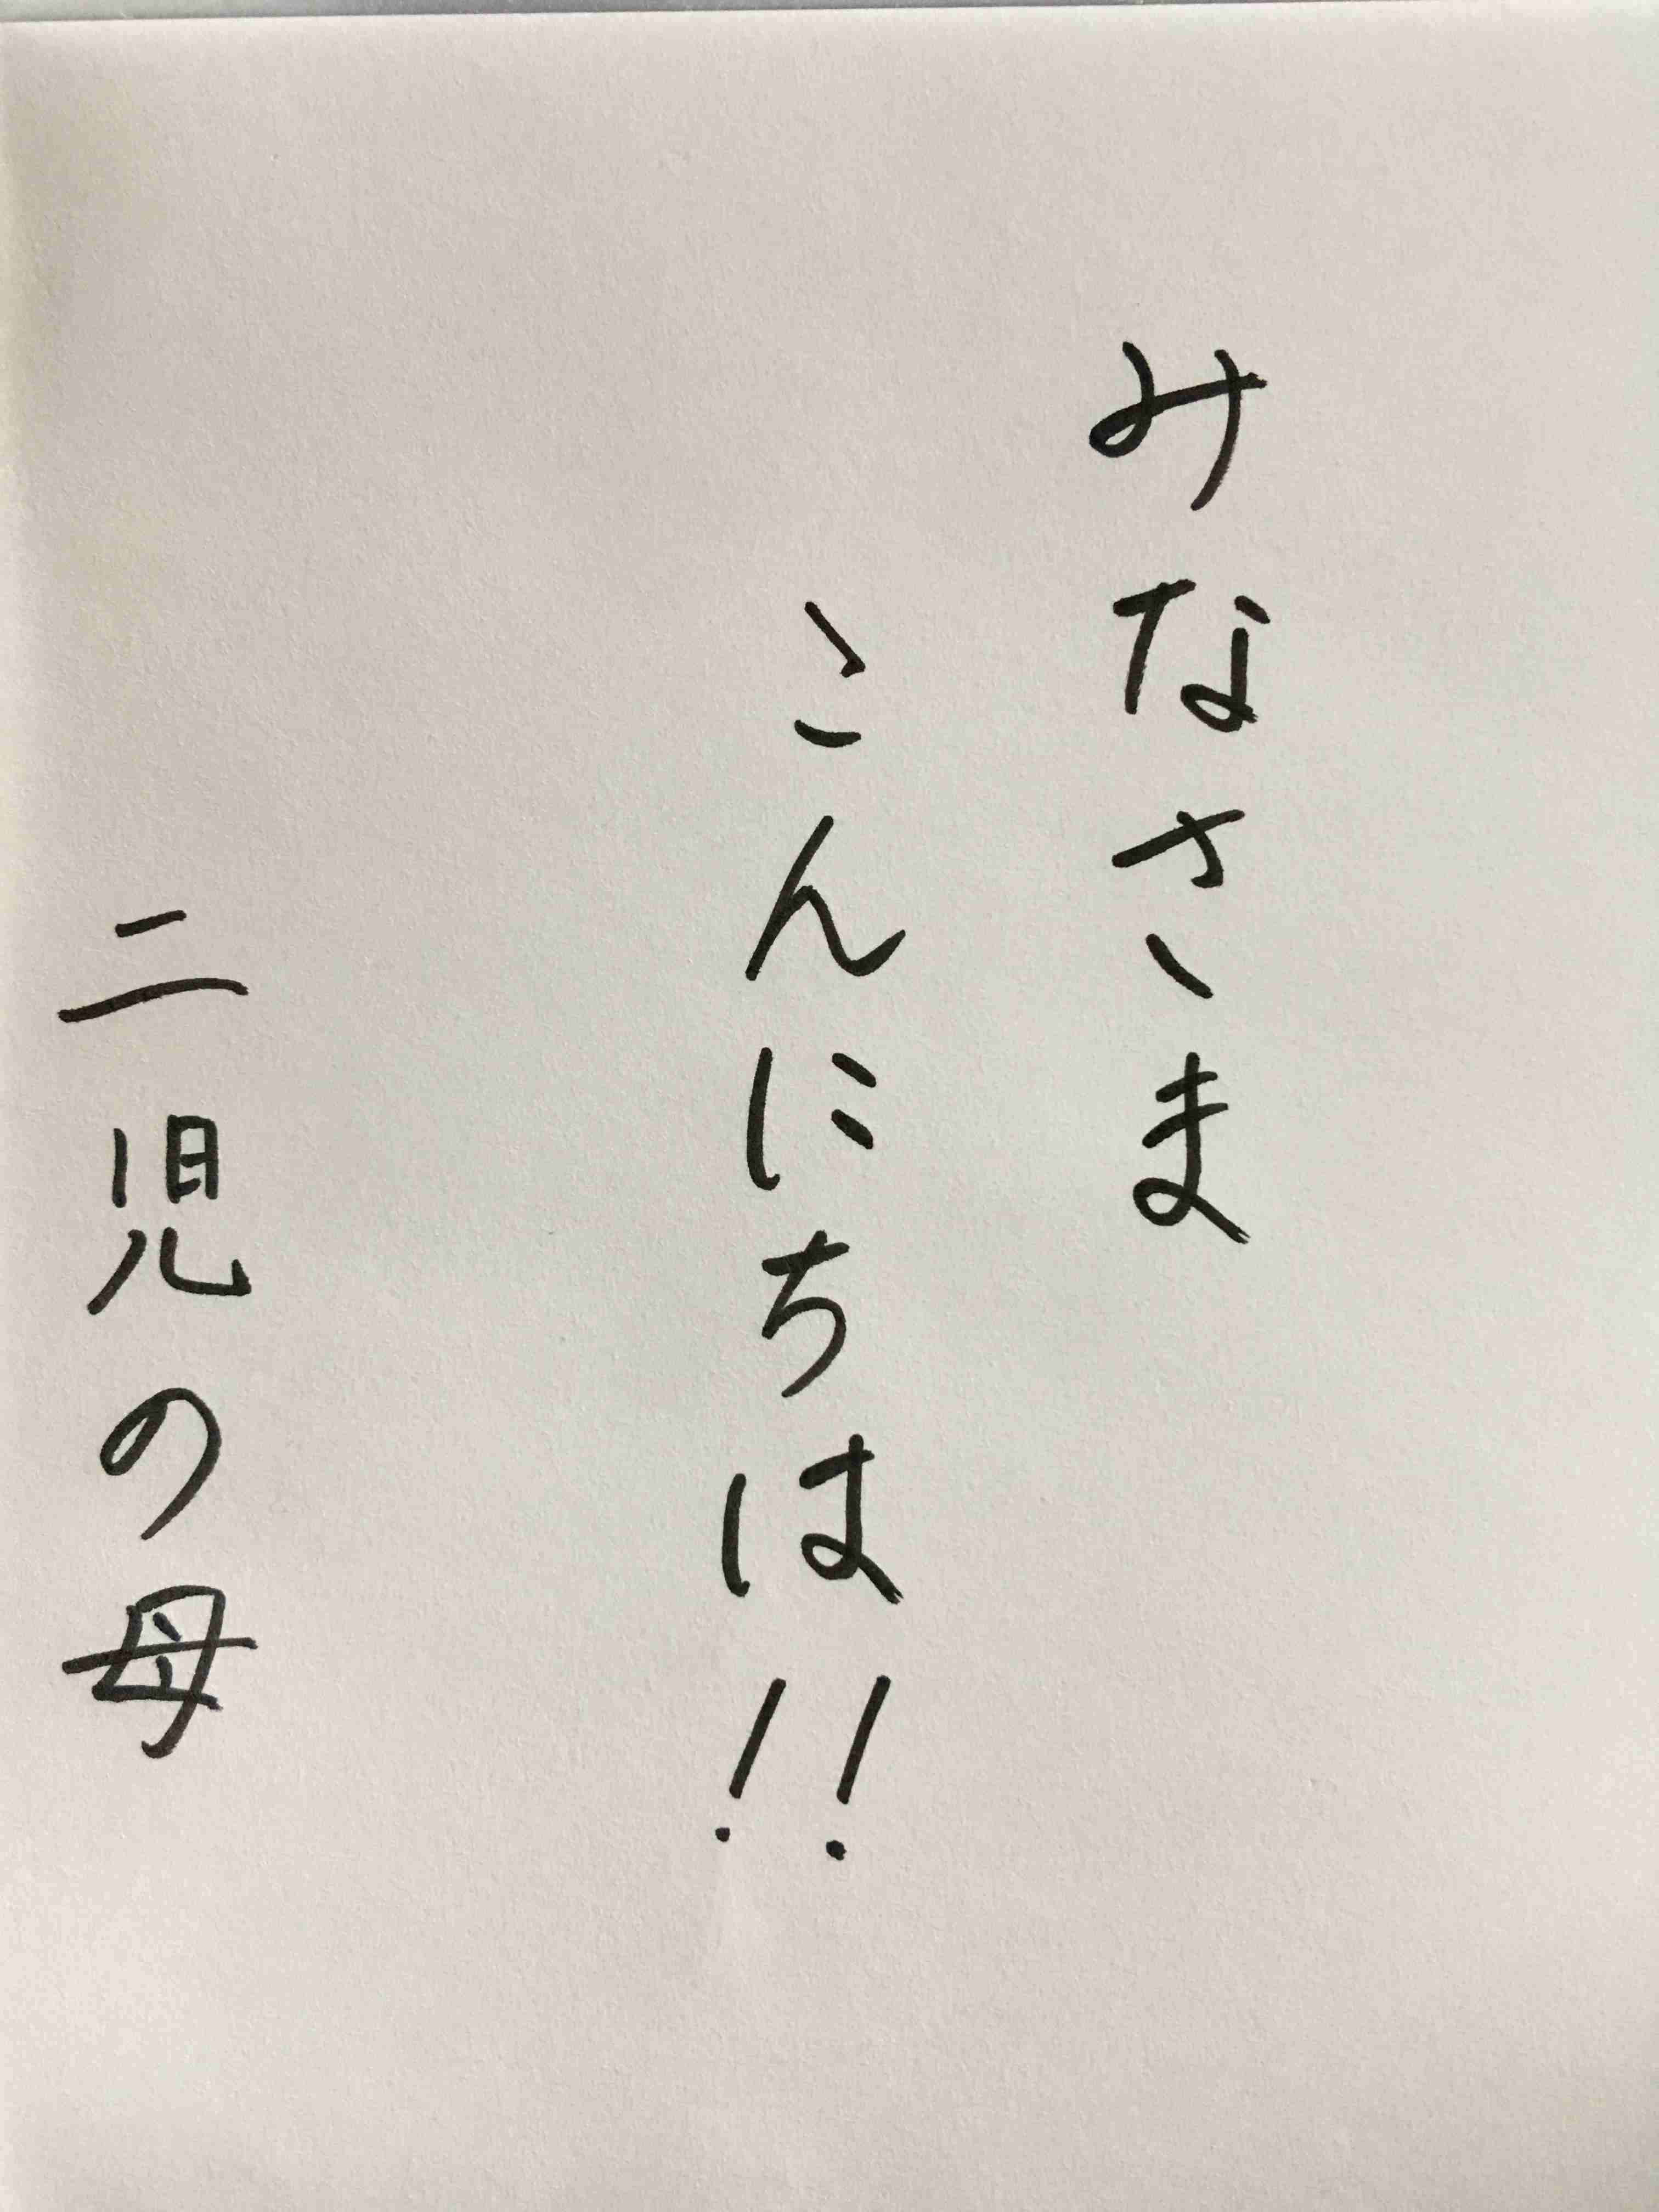 みなさま
こんにちは!!
二児の母